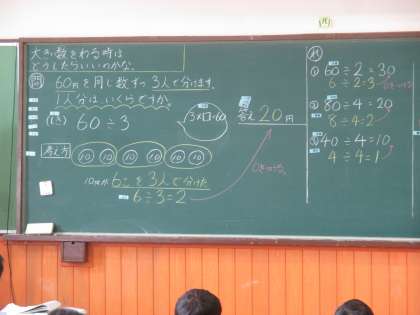 大きい数をわる時は
どうしたらいいのかな。
問 60円を同じ数ずつ3人で分けます。
1人分は、いくらですか。
(しき) 60÷3
3×□=60
答え 20円
考え方
10 10 10 10 10 10
10円が6こを3人で分けた
6÷3=2
0をつける
① 60÷2=30
6÷2=3
② 80÷4=20
8÷4=2
③ 40÷4=10
4÷4=1